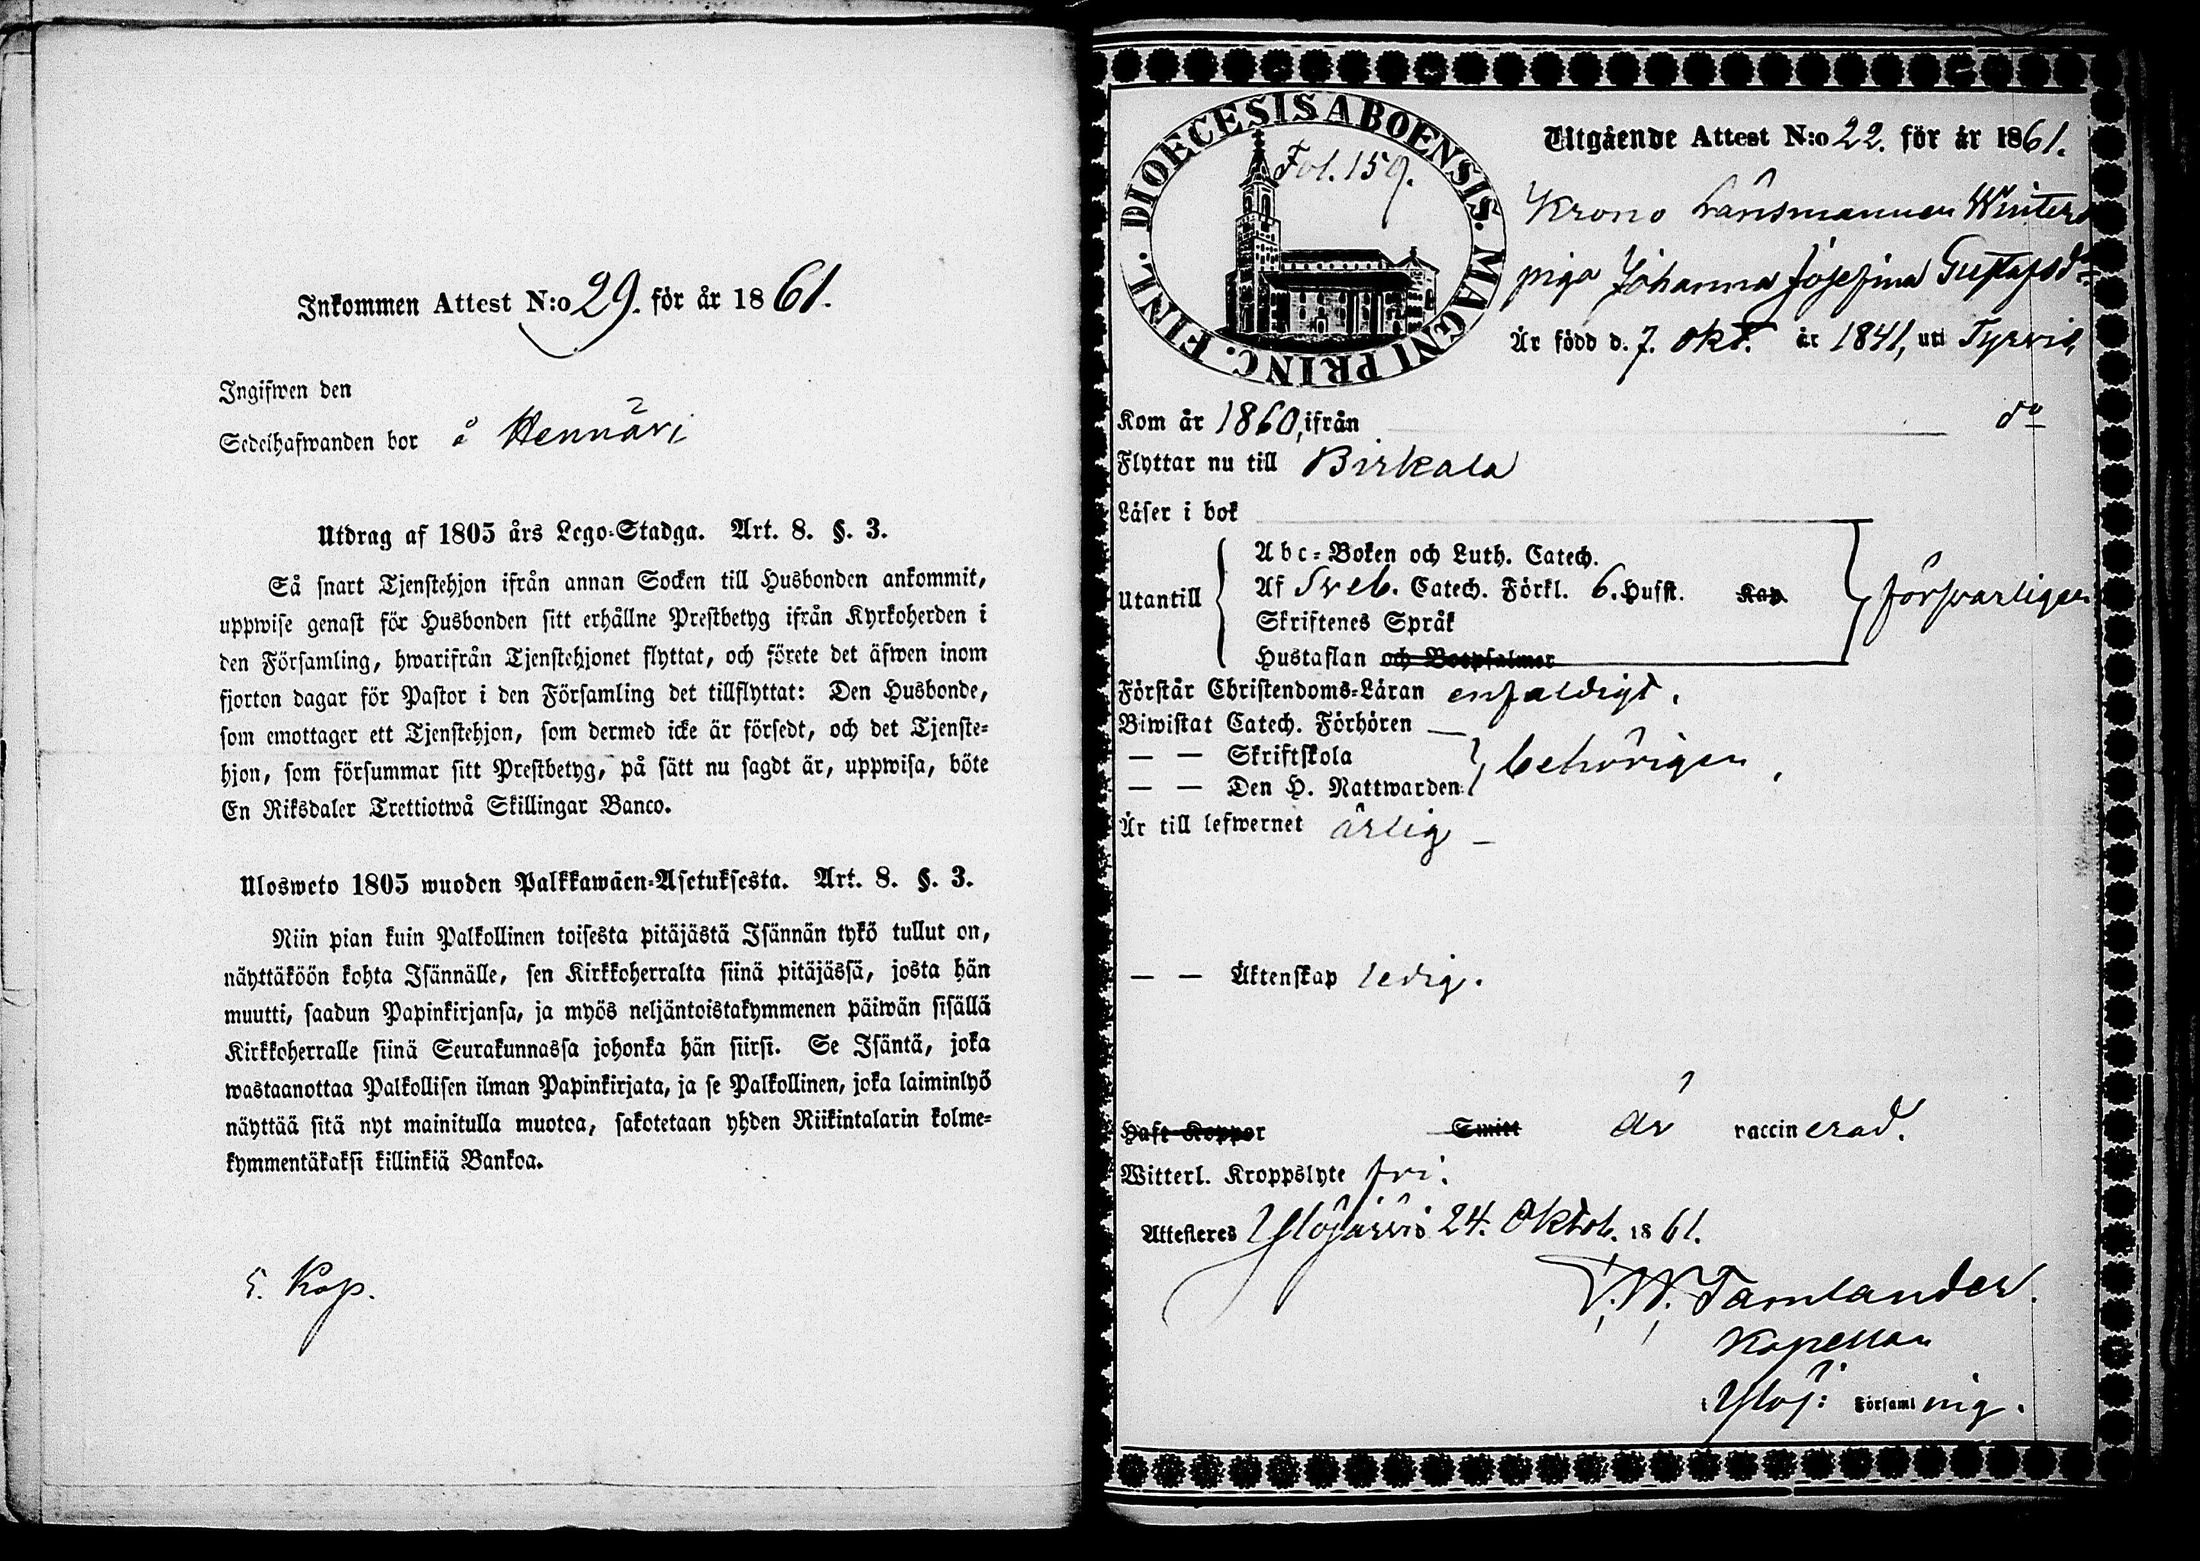 Inkommen Attest N:o 29. för år 1861.
Ingifwen den
Sedelhafwanden bor å Hennäri
Utdrag af 1805 års Lego-Stadga. Art. 8. §. 3.
Så snart Tjenstehjon ifrån annan Socken till Husbonden ankommit,
uppwise genast för Husbonden sitt erhållne Prestbetyg ifrån Kyrkoherden i
den Församling, hwarifrån Tjenstehjonet flyttat, och förete det äfwen inom
fjorton dagar för Pastor i den Församling det tillflyttat: Den Husbonde,
som emottager ett Tjenstehjon, som dermed icke är försedt, och det Tjenste-
hjon, som försummar sitt Prestbetyg, på sätt nu sagdt är, uppwisa, böte
En Riksdaler Trettiotwå Skillingar Banco.
Ulosweto 1805 wuoden Palkkawäen-Asetuksesta. Art. 8. §. 3.
Niin pian kuin Palkollinen toisesta pitäjästä Isännän tykö tullut on,
näyttäköön kohta Isännälle, sen Kirkkoherralta siinä pitäjässä, josta hän
muutti, saadun Papinkirjansa, ja myös neljäntoistakymmenen päiwän sisällä
Kirkkoherralle siinä Seurakunnassa johonka hän siirsi. Se Isäntä, joka
wastaanottaa Palkollisen ilman Papinkirjata, ja se Palkollinen, joka laiminlyö
näyttää sitä nyt mainitulla muotoa, sakotetaan yhden Riikintalarin kolme-
kymmentäkaksi killinkiä Bankoa.
5. Kop.
DIOECESIS ABOENSIS. MAGNI PRINC. FINL.
Fol. 159.
Utgående Attest N:o 22. för år 1861.
Krono Länsmannen Winters
piga Johanna Josefina Gustafsdr
Är född d. 7. Okt. år 1841, uti Tyrvis,
Kom år 1860, ifrån do
Flyttar nu till Birkala
Läser i bok
Utantill
Abc-Boken och Luth. Catech.
Af Sveb. Catech. Förkl. 6. Hufst. Kap.
Skriftenes Språk
Hustaflan och Botpsalmer
försvarligen
Förstår Christendoms-Läran enfaldigt.
Biwistat Catech. Förhören —
— — Skriftskola
— — Den H. Nattwarden
behörigen,
Är till lefwernet ärlig —
— — Äktenskap ledig.
Haft Koppor Smitt är vaccinerad.
Witterl. Kroppslyte fri.
Attesteres Ylöjärvis 24. Oktob. 1861.
T. W. Tamlander.
Kapellan
i Ylöj: Församlnig.